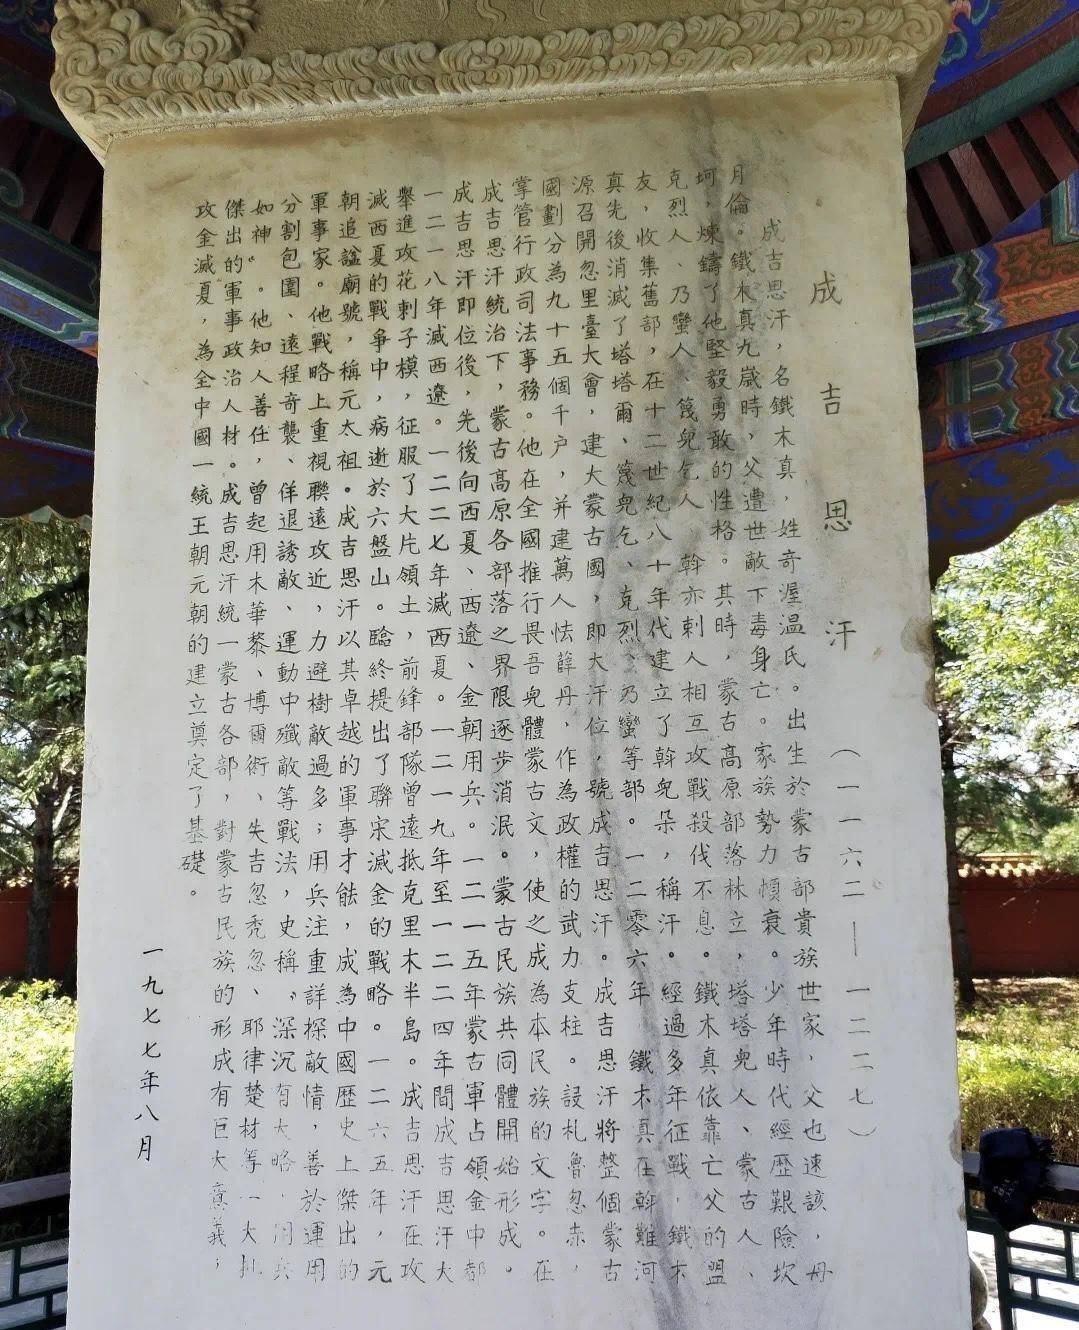 成吉思汗
（一一六二——一二二七）
成吉思汗，名鐵木真，姓奇渥温氏。出生於蒙古部貴族世家，父也速該，母
月倫。鐵木真九歲時，父遭世敵下毒身亡。家族勢力傾衰。少年時代經歷艱險坎
坷，煉鑄了他堅毅勇敢的性格。其時，蒙古高原部落林立，塔塔兒人、蒙古人、
克烈人、乃蠻人、篾兒乞人、斡亦剌人相互攻戰殺伐不息。鐵木真依靠亡父的盟
友，收集舊部，在十二世紀八十年代建立了斡兒朵，稱汗。經過多年征戰，鐵木
真先後消滅了塔塔爾、篾兒乞、克烈、乃蠻等部。一二零六年，鐵木真在斡難河
源召開忽里臺大會，建大蒙古國，即大汗位，號成吉思汗。成吉思汗將整個蒙古
國劃分為九十五個千户，并建萬人怯薛丹，作為政權的武力支柱。設札魯忽赤，
掌管行政司法事務。他在全國推行畏吾兒體蒙古文，使之成為本民族的文字。在
成吉思汗統治下，蒙古高原各部落之界限逐步消泯。蒙古民族共同體開始形成。
成吉思汗即位後，先後向西夏、西遼、金朝用兵。一二一五年蒙古軍占領金中都
一二一八年滅西遼。一二二七年滅西夏。一二一九年至一二二四年間成吉思汗大
舉進攻花剌子模，征服了大片領土，前鋒部隊曾遠抵克里木半島。成吉思汗在攻
滅西夏的戰爭中，病逝於六盤山。臨終提出了聯宋滅金的戰略。一二六五年，元
朝追諡廟號，稱元太祖。成吉思汗以其卓越的軍事才能，成為中國歷史上傑出的
軍事家。他戰略上重視聯遠攻近，力避樹敵過多；用兵注重詳探敵情，善於運用
分割包圍、遠程奇襲、佯退誘敵、運動中殲敵等戰法，史稱〝深沉有大略，用兵
如神〞。他知人善任，曾起用木華黎、博爾術、失吉忽禿忽、耶律楚材等一大批
傑出的軍事政治人材。成吉思汗統一蒙古各部，對蒙古民族的形成有巨大意義；
攻金滅夏，為全中國一統王朝元朝的建立奠定了基礎。
一九七七年八月